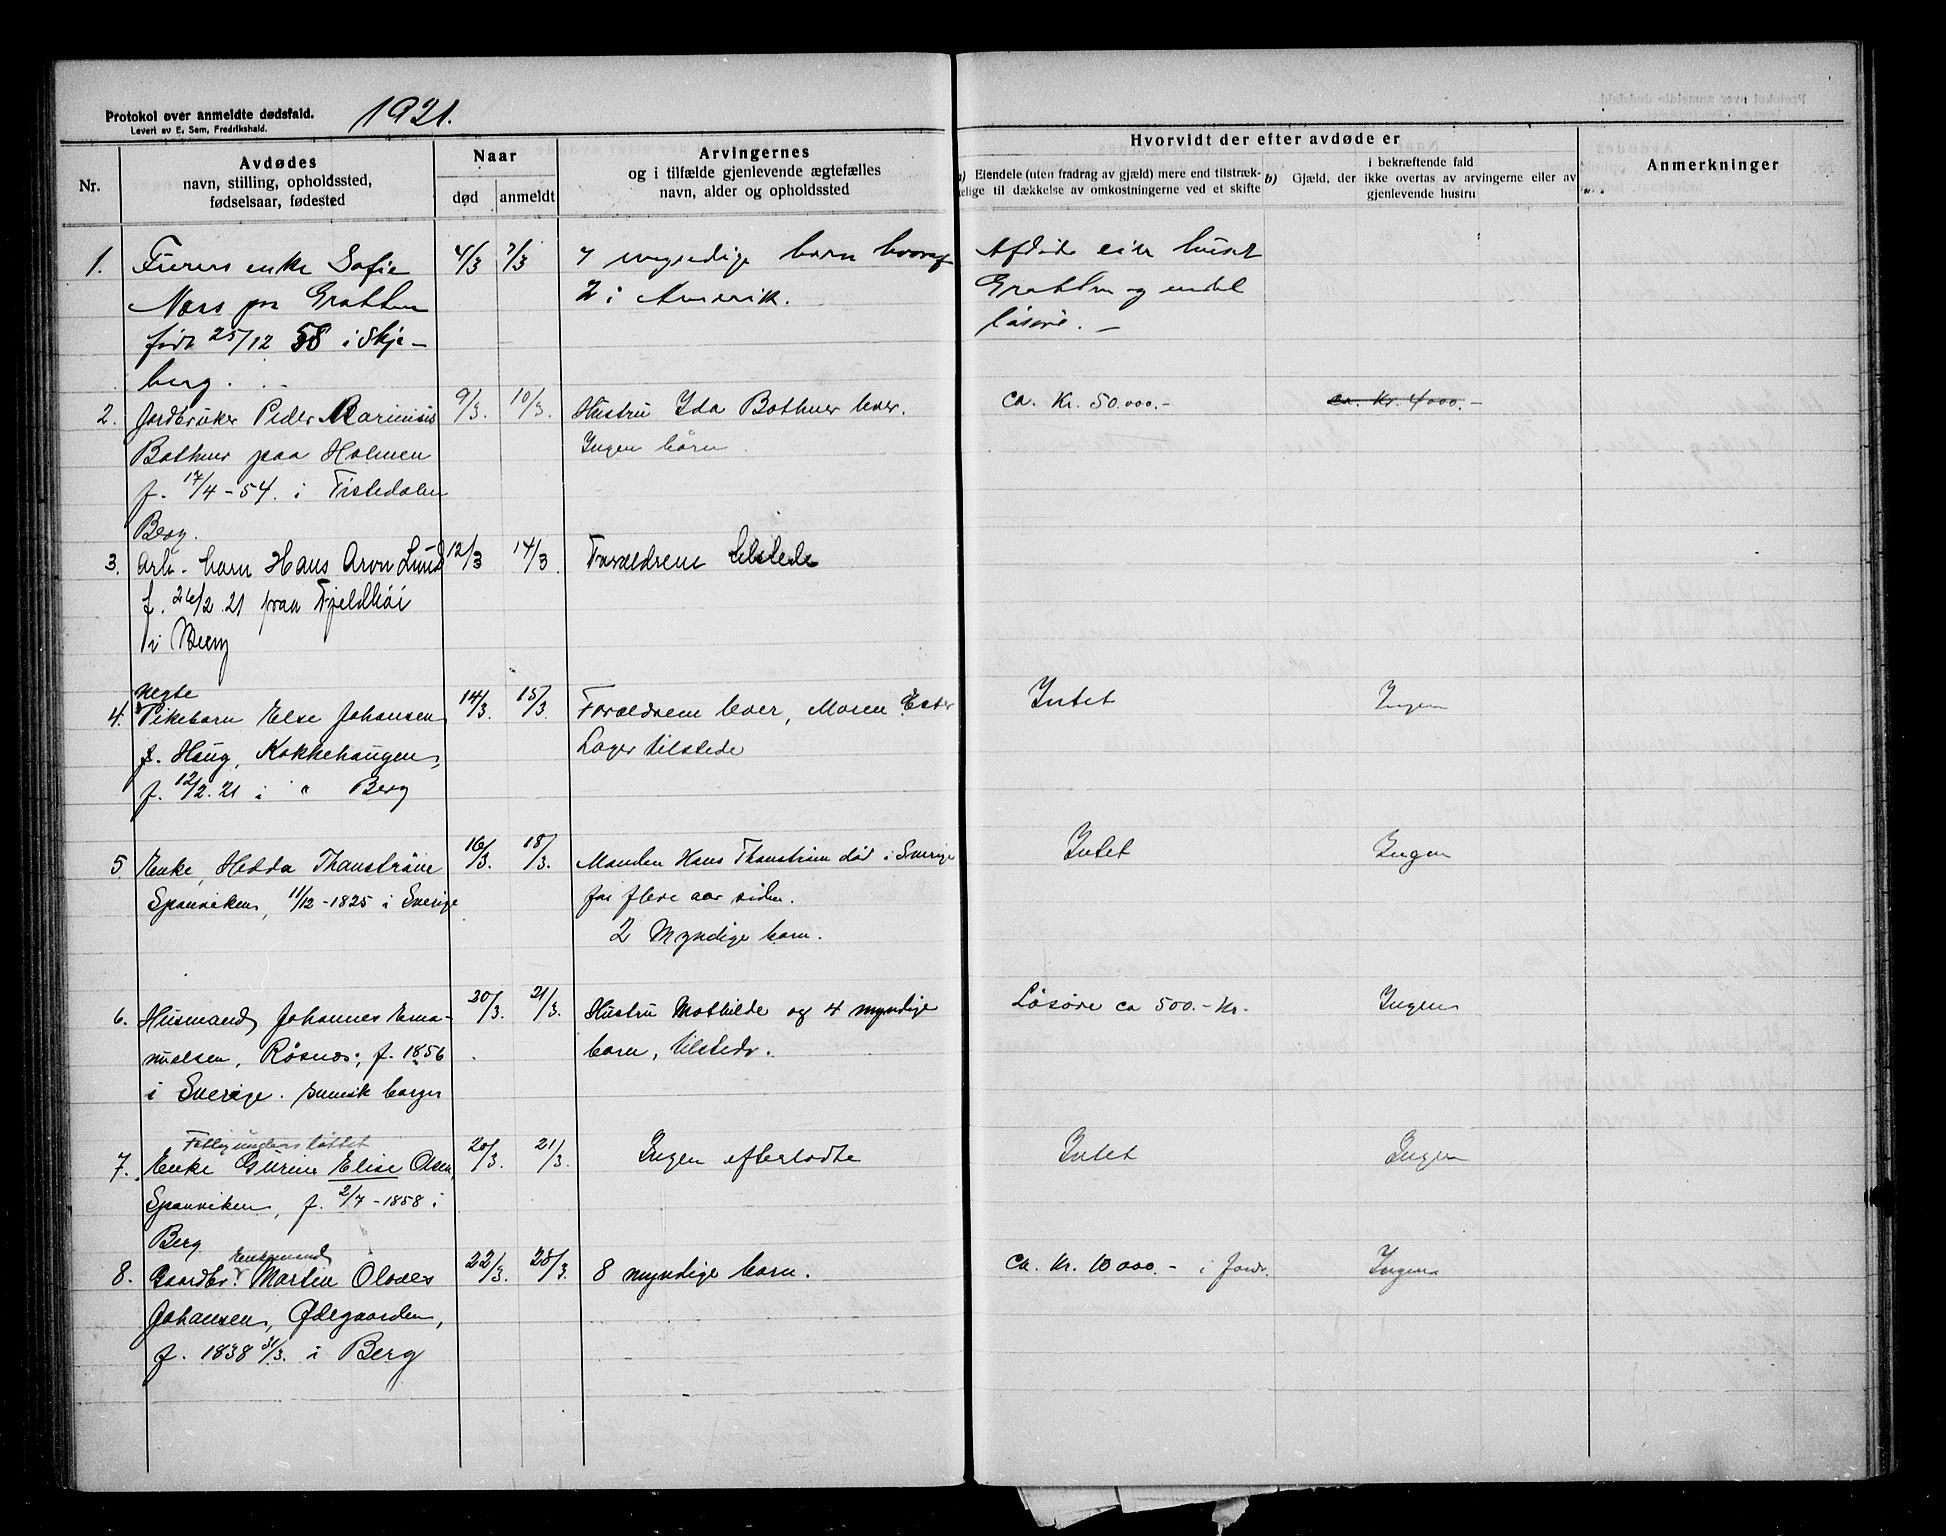 Protokol over anmeldte dødsfald.
Levert av E. Sem, Fredrikshald.
1921.
Nr.
Avdødes
navn, stilling, opholdssted,
fødselsaar, fødested
Naar
død
anmeldt
Arvingernes
og i tilfælde gjenlevende ægtefælles
navn, alder og opholdssted
Hvorvidt der efter avdøde er
a) Eiendele (uten fradrag av gjæld) mere end tilstræk-
kelige til dækkelse av omkostningerne ved et skifte
b) Gjæld, der
i bekræftende fald
ikke overtas av arvingerne eller av
gjenlevende hustru
Anmerkninger
1.
enke Sofie
Næs paa Grotten
født 25/12 58 i Skje-
berg.
4/3
7/3
7 myndige barn hvoraf
2 i Amerik.
Afdøde eier huset
Grotten og endel
løsøre. -
2.
Jordbruker Peder Marinius
Bothner paa Holmen
f. 17/4 - 54. i Tistedalen
Berg.
9/3.
10/3.
Hustru Ida Bothner lever.
Ingen børn
ca. Kr. 50.000.-
ca. Kr. 4000.-
3.
Arb. barn Hans Aron Lund
f. 26/2 21 paa Fjeldhøi
i Berg
12/3
14/3
Forældrene tilstede
4.
Negte
Pikebarn Else Johansen
f. Haug, Kokkehaugen,
f. 12/2. 21 i " Berg
14/3.
15/3.
Forældrene lever, Moren Ester
Lager tilstede
Intet
Ingen
5.
Enke, Hedda Thanstrøm
Sponviken, 11/12 - 1825 i Sverige
16/3.
18/3.
Manden Hans Thanstrøm død i Sverige
for flere aar siden.
2 Myndige barn.
Intet
Ingen
6.
Husmand Johannes Ema-
nuelsen, Røsnæs, f. 1856
i Sverige. svensk borger
20/3.
21/3.
Hustru Mathilde og 4 myndige
barn, tilstede.
Løsøre ca 500.- Kr.
Ingen
7.
Fattigunderstøttet
Enke Gurine Elise Olsen,
Sponviken, f. 2/7 - 1858 i
Berg
20/3.
21/3.
Ingen efterladte
Intet
Ingen
8.
Enkemand
Gaardbr. Martin Olaves
Johansen, Ødegaarden,
f. 1838 31/3. i Berg
22/3.
28/3.
8 myndige barn.
Ca. Kr. 10 000.- i jord.
Ingen